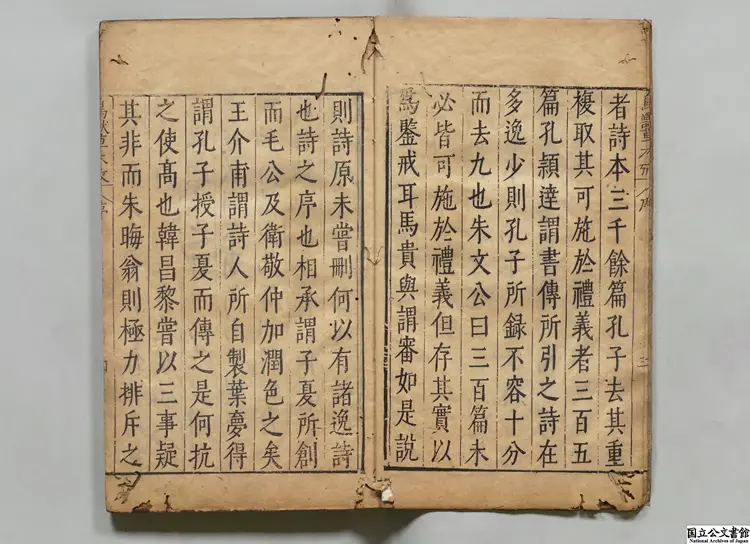 者詩本三千餘篇孔子去其重
複取其可施於禮義者三百五
篇孔頴達謂書傳所引之詩在
多逸少則孔子所録不容十分
而去九也朱文公曰三百篇未
必皆可施於禮義但存其實以
爲鑒戒耳馬貴與謂審如是說
則詩原未嘗刪何以有諸逸詩
也詩之序也相承謂子夏所創
而毛公及衛敬仲加潤色之矣
王介甫謂詩人所自製葉夢得
謂孔子授子夏而傳之是何抗
之使髙也韓昌黎嘗以三事疑
其非而朱晦翁則極力排斥之
国立公文書館
National Archives of Japan